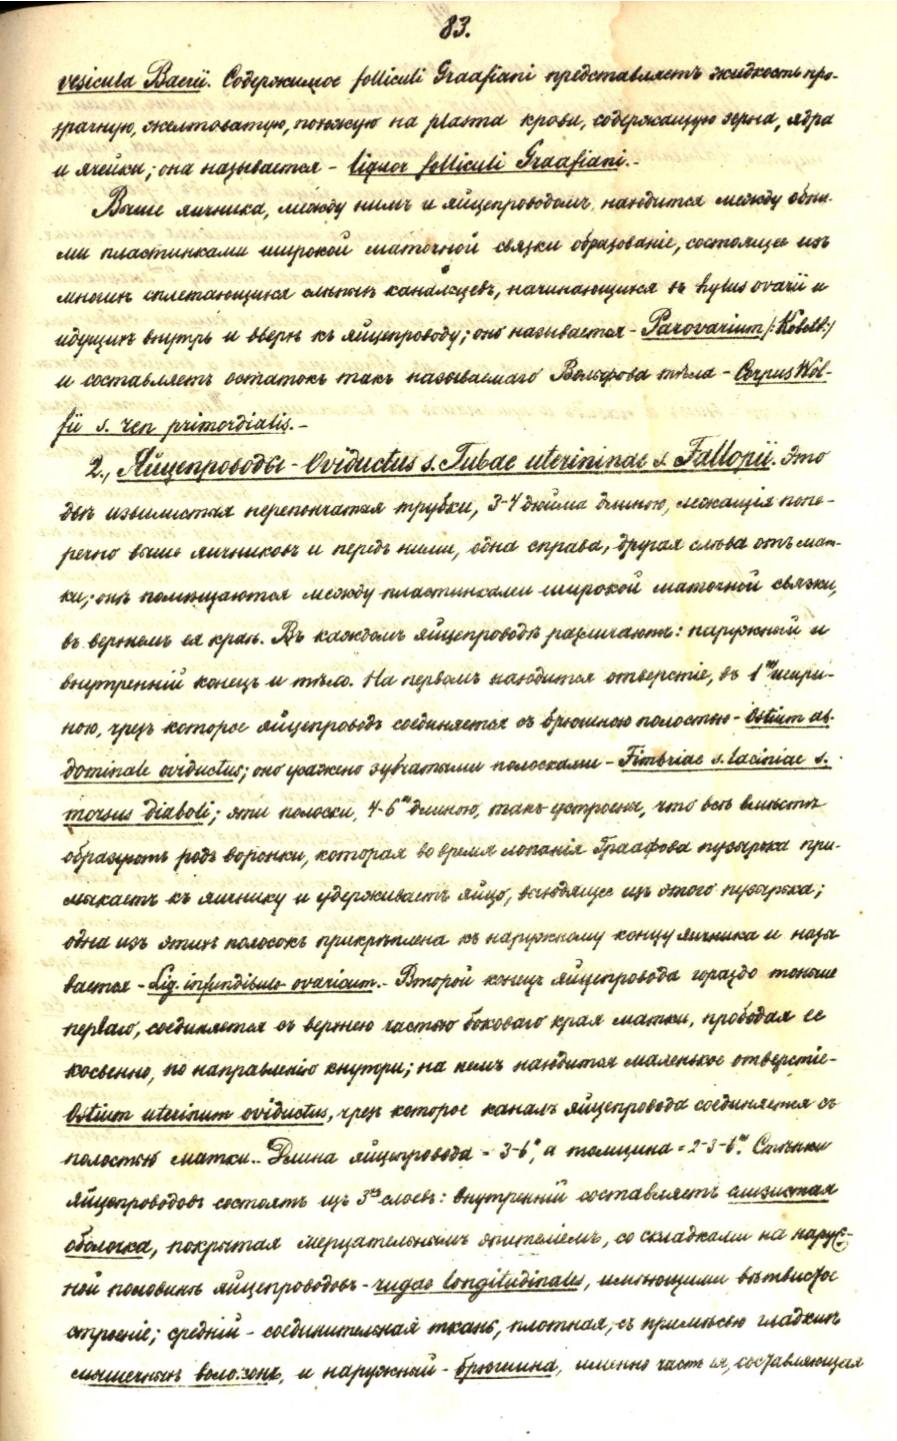 83.
vesicula Baerii. Содержимое folliculi Graafiani представляетъ жидкость про-
зрачную, желтоватую, похожую на plasma крови, содержащую зерна, ядра
и ячейки; она называется - liquor folliculi Graafiani.-
Выше яичника, между нимъ и яйцепроводомъ, находится между обѣи-
ми пластинками широкой маточной связки образованіе, состоящее изъ
многихъ сплетающихся слѣпыхъ канальцевъ, начинающихся въ hylus ovarii и
идущихъ внутрь и вверхъ къ яйцепроводу; оно называется - Parovarium /:Kobelt:/
и составляетъ остатокъ такъ называемаго Вольфова тѣла - Corpus Wol-
fii s. ren primordialis.-
2., Яйцепроводы - Oviductus s. Tubae uterininae s. Fallopii. Это
двѣ извилистыя перепончатыя трубки, 3-4 дюйма длиною, лежащія попе-
речно выше яичниковъ и передъ ними, одна справа, другая слѣва отъ мат-
ки; онѣ помѣщаются между пластинками широкой маточной связки,
въ верхнемъ ея краѣ. Въ каждомъ яйцепроводѣ различаютъ: наружный и
внутренній конецъ и тѣло. На первомъ находится отверстіе, въ 1''' шири-
ною, чрезъ которое яйцепроводъ соединяется съ брюшною полостью - Ostium ab-
dominale oviductus; оно усажено зубчатыми полосками - Fimbriae s. laciniae s.
morsus diaboli; эти полоски, 4-6''' длиною, такъ устроены, что всѣ вмѣстѣ
образуютъ родъ воронки, которая во время лопанія Граафова пузырька при-
мыкаетъ къ яичнику и удерживаетъ яйцо, выходящее изъ этого пузырька;
одна изъ этихъ полосокъ прикрѣплена къ наружному концу яичника и назы-
вается - Lig. infundibulo-ovaricum.- Второй конецъ яйцепровода гораздо тоньше
перваго, соединяется съ верхнею частью боковаго края матки, прободая ее
косвенно, по направленію кнутри; на немъ находится маленькое отверстіе-
Ostium uterinum oviductus, чрезъ которое каналъ яйцепровода соединяется съ
полостью матки.. Длина яйцепровода = 3-6'', а толщина = 2-3-6'''. Стѣнки
яйцепроводовъ состоятъ изъ 3хъ слоевъ: внутренній составляетъ слизистая
оболочка, покрытая мерцательнымъ эпителіемъ, со складками на наруж-
ной половинѣ яйцепроводовъ - rugae longitudinales, имѣющими вѣтвистое
строеніе; средній - соединительная ткань, плотная, съ примѣсью гладкихъ
мышечныхъ волоконъ, и наружный - брюшина, именно часть ея, составляющая